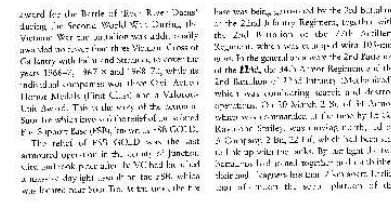 award for the Battle of 'Roer River Dams'
during the Second World War. During the
Vietnam War the battalion was additionally
awarded no fewer than three Vietnam Cross of
Gallantry with Palm and Streamer, to cover the
years 1966–7, 1967–8 and 1968–70, while its
individual companies won three Civil Action
Honor Medals (First Class) and a Valorous
Unit Award. This is the story of the action at
Suoi Tre which involved the relief of an isolated
Fire Support Base (FSB), known as FSB GOLD.
The relief of FSB GOLD was the last
armoured operation in the county of Junction
City and took place after the VC had launched
a massive daylight assault on the FSB, which
was located near Suoi Tre. At the time, the fire
base was being garrisoned by the 3rd Battalion
of the 22nd Infantry Regiment, together with
the 2nd Battalion of the 77th Artillery
Regiment, which was equipped with 105-mm
guns. In the general area were the 2nd Battalion
of the 34th Armor Regiment and the
2nd Battalion of 22nd Infantry (Mechanized)
which was conducting search and destroy
operations. On 20 March 2 Bn of 34 Armor
which was commanded at the time by Lt Col
Raymond Stailey, was moving north, led by
Company, 2 Bn, 22 Inf, which had been sent
to link up with the tanks. By last light the two
battalions had joined together and established
their night laagers less than 2 kilometres apart.
that afternoon the scout platoon of the